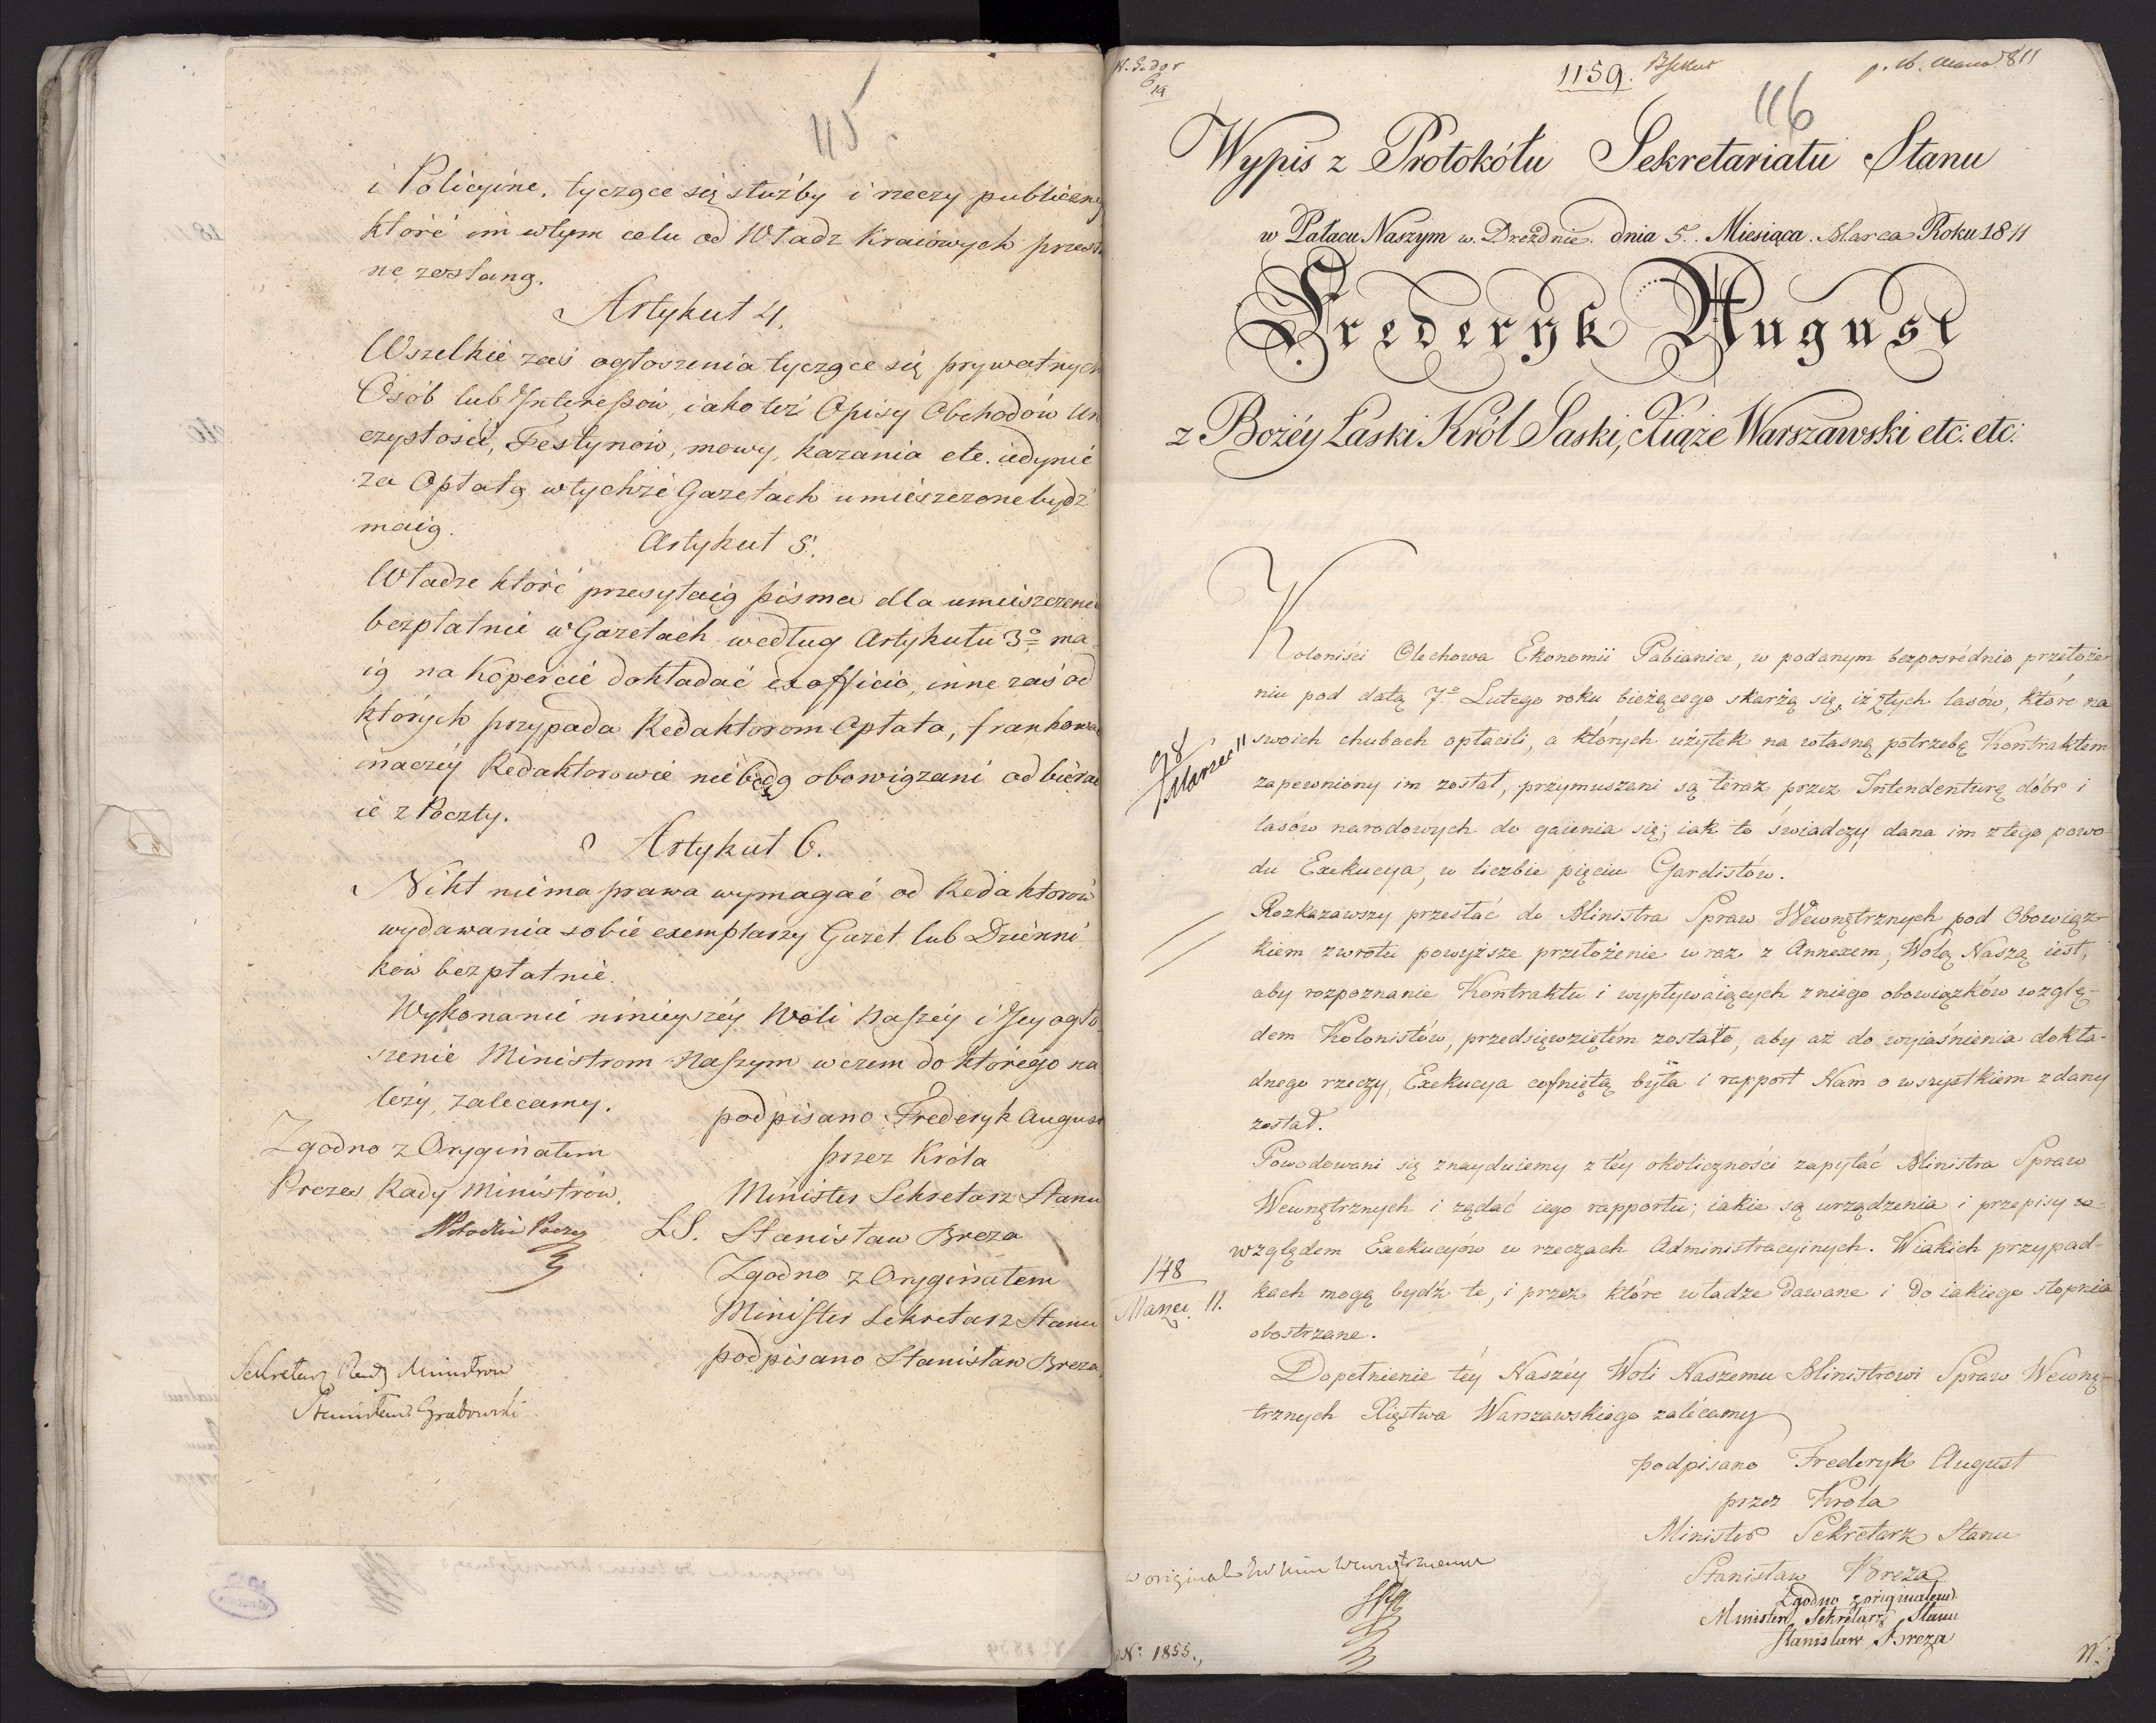 115
i Policyine, tyczące się służby i rzeczy publiczney
które im wtym celu od Władz Kraiowych przesła
ne zostaną.
Artykuł 4.
Wszelkie zaś ogłoszenia tyczące się prywatnych
Osób lub Interessów, iako też Opisy Obchodów Uro
czystości, Festynow, mowy, kazania etc. iedynie
za Opłatą wtychże Gazetach umieszczone bydź
maią.
Artykuł 5.
Władze które przesyłaią pisma dla umieszczenia
bezpłatnie w Gazetach według Artykułu 3º ma
ią na Kopercie dokładać ex officio, inne zaś od
których przypada Redaktorom Opłata, frankować
inaczéy Redaktorowie nie będą obowiązani odbierać
ie z Poczty.
Artykuł 6.
Nikt niema prawa wymagać od Redaktorow
wydawania sobie exemplarzy Gazet lub Dzienni
kow bezpłatnie.
Wykonanie ninieyszéy Woli Naszéy i Jey ogło
szenie Ministrom Naszym w czem do którego na
leży, zalecamy.
podpisano Frederyk August
Zgodno z Oryginałem
przez Króla
Prezes Rady Ministrów.
Minister Sekretarz Stanu
L.S. Stanisław Breza
Zgodno z Oryginałem
Minister Sekretarz Stanu
podpisano Stanisław Breza
Sekretarz Rady Ministrow
Stanisław Grabowski
1159.
116
Wypis z Protokółu Sekretariatu Stanu
w Pałacu Naszym w Dreźdnie dnia 5. Miesiąca Marca Roku 1811
Frederyk August
z Bożéy Łaski Król Saski, Xiąże Warszawski etc: etc:
Koloniści Olechowa Ekonomii Pabianice, w podanym bezpośrednio przełoże
niu pod datą 7º Lutego roku bieżącego skarżą się, iż z tych lasów, które na
swoich chubach opłacili, a których użytek na własną potrzebę Kontraktem
zapewniony im został, przymuszani są teraz przez Intendenturę dóbr i
lasów narodowych do gaienia się; iak to świadczy dana im z tego powo-
du Exekucya, w liczbie pięciu Gardistów.
Rozkazawszy przesłać do Ministra Spraw Wewnętrznych pod Obowiąz-
kiem zwrotu powyższe przełożenie wraz z Annexem, Wolą Naszą iest,
aby rozpoznanie Kontraktu i wypływaiących z niego obowiązków wzglę-
dem Kolonistów, przedsięwziętém zostało, aby aż do wyiaśnienia dokła-
dnego rzeczy, Exekucya cofniętą była i rapport Nam o wszystkiem zdany
został.
Powodowani się znayduiemy z téy okoliczności zapytać Ministra Spraw
Wewnętrznych i żądać iego rapportu; iakie są urządzenia i przepisy
względem Exekucyów w rzeczach Administracyinych. W iakich przypad-
kach mogą bydź te, i przez które władze dawane i do iakiego stopnia
obostrzane.
98
Marca 11
148
Marzec 11.
Dopełnienie téy Naszéy Woli Naszemu Ministrowi Spraw Wewnę-
trznych Xięstwa Warszawskiego zalécamy
podpisano Frederyk August
przez Króla
Minister Sekretarz Stanu
Stanisław Breza
Zgodno z originałem
Minister Sekretarz Stanu
Stanisław Breza
Nº 1855.